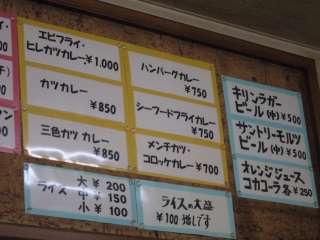 エビフライ・
ヒレカツカレー ¥1,000
カツカレー
¥850
三色カツカレー
¥850
ハンバークカレー
¥750
シーフードフライカレー
¥750
メンチカツ・
コロッケカレー ¥700
キリンラガー
ビール(中) ¥500
サントリーモルツ
ビール(中) ¥500
オレンジジュース
コカコーラ各 ¥250
ライス
大 ¥ 200
中 ¥ 150
小 ¥ 100
ライスの大盛
¥100 増しです